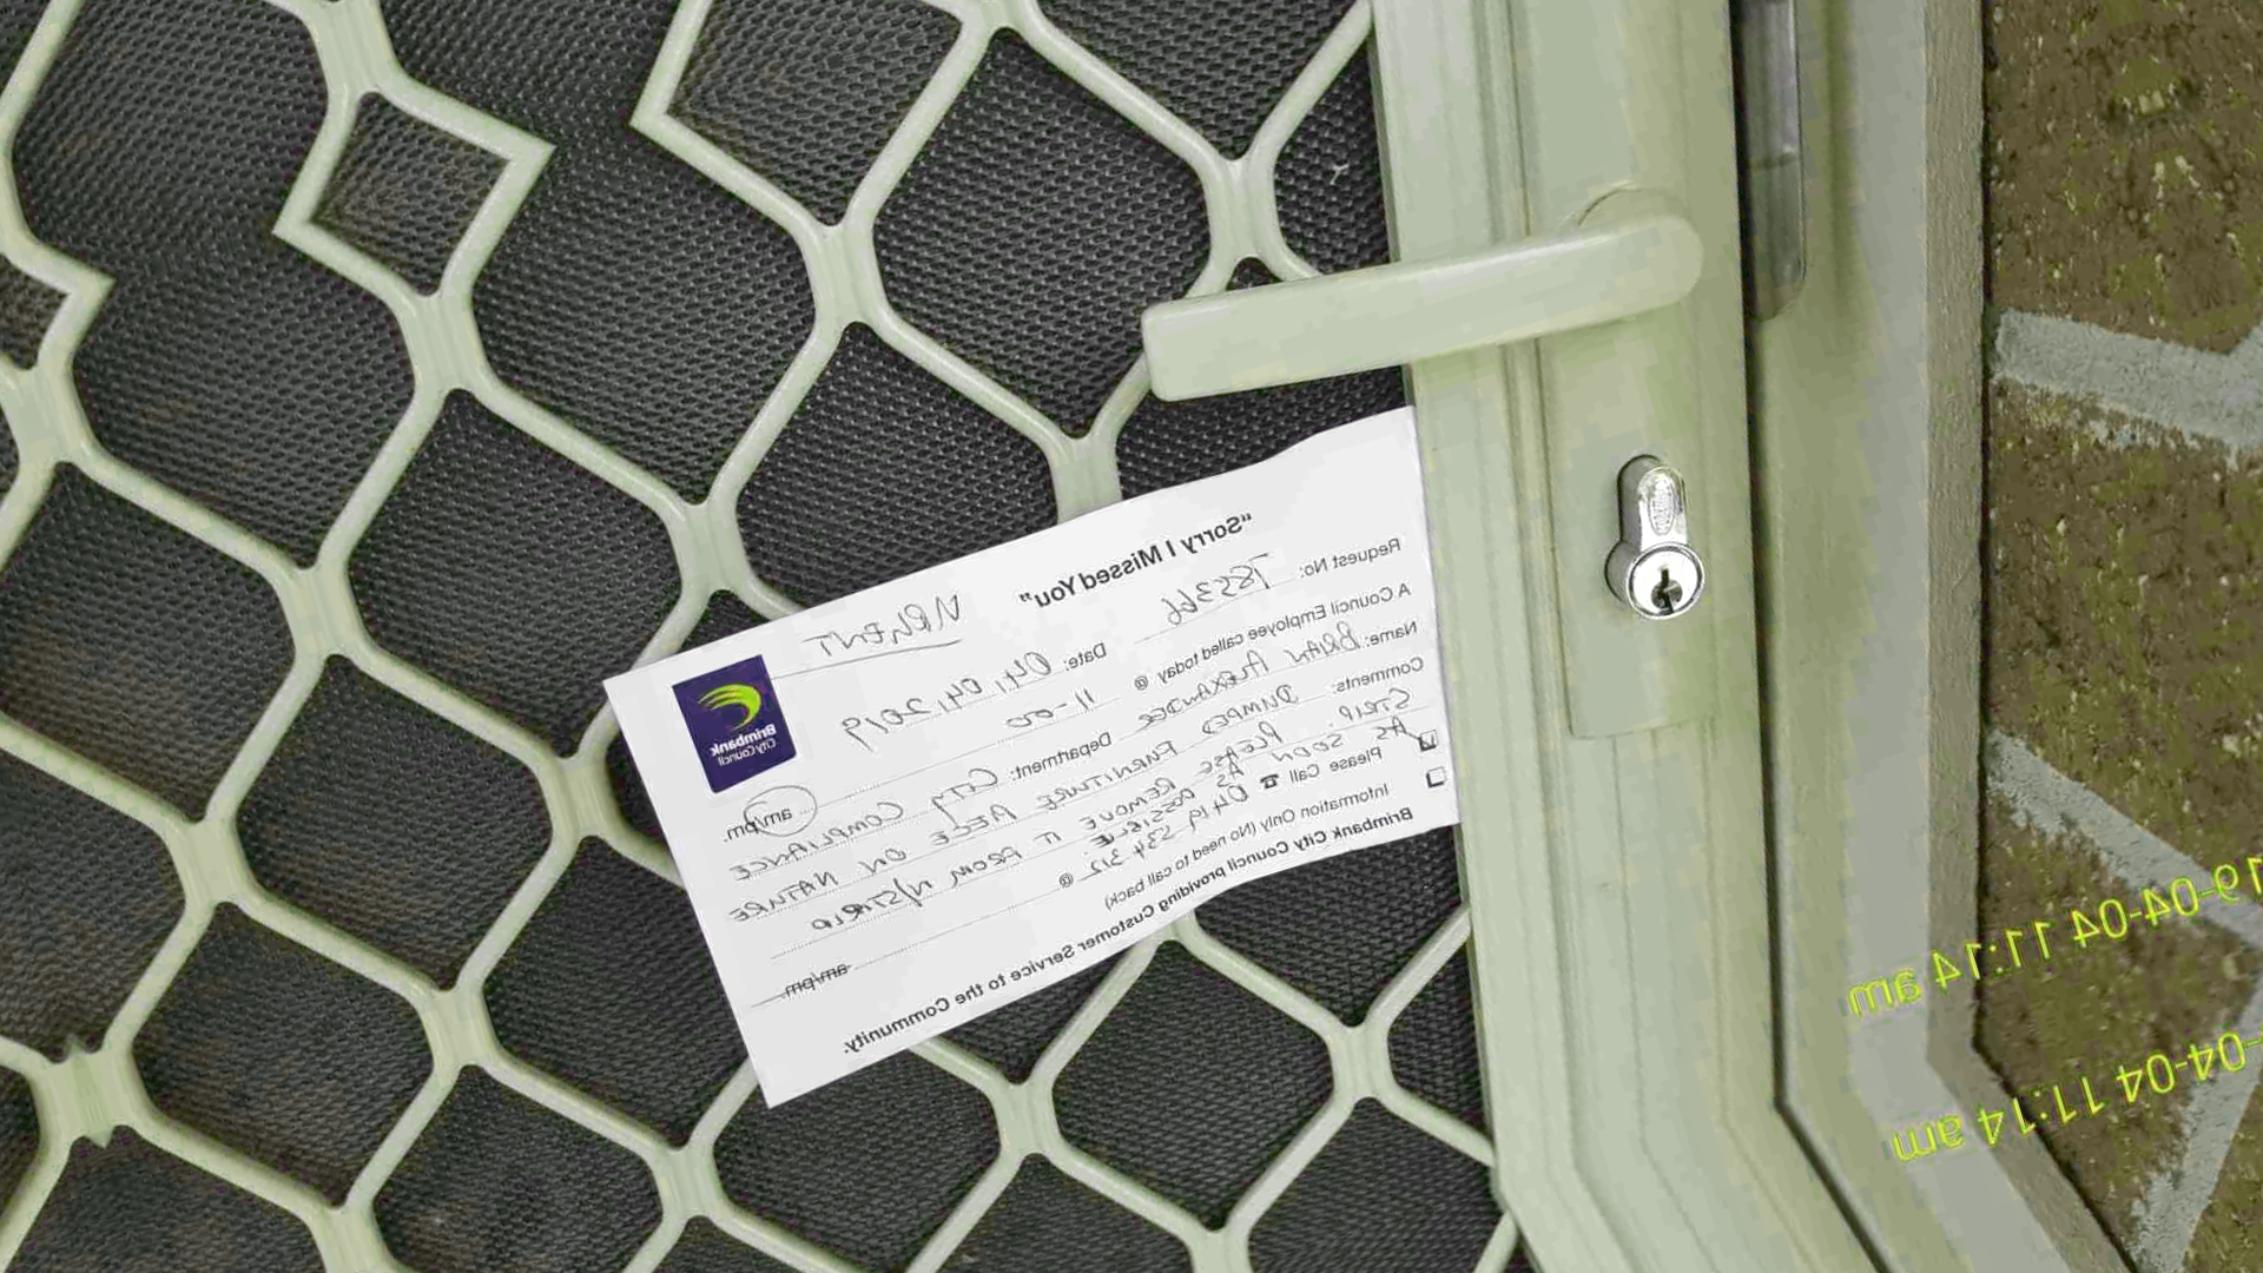 "Sorry I Missed You"
URGENT
Brimbank
City Council
Request No: T855366 Date: 04, 04, 2019
A Council Employee called today @ 11-00 am/pm.
Name: BRIAN ALEXANDER Department: CITY COMPLIANCE
Comments: DUMPED FURNITURE HERE ON NATURE
STRIP. PLEASE REMOVE IT FROM N/STRIP
AS SOON AS POSSIBLE.
Please Call ☎ 0419 534 312 @ am/pm.
Information Only (No need to call back)
Brimbank City Council providing Customer Service to the Community.
19-04-04 11:14 am
-04-04 11:14 am